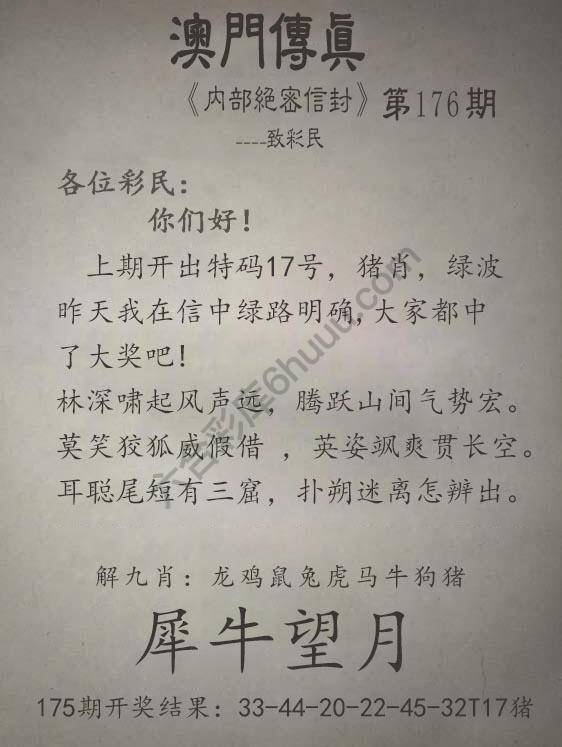 澳門傳眞
《内部絕密信封》第176期
----致彩民
各位彩民：
你们好！
上期开出特码17号，猪肖，绿波
昨天我在信中绿路明确，大家都中
了大奖吧！
林深啸起风声远，腾跃山间气势宏。
莫笑狡狐威假借，英姿飒爽贯长空。
耳聪尾短有三窟，扑朔迷离怎辨出。
解九肖：龙鸡鼠兔虎马牛狗猪
犀牛望月
175期开奖结果：33-44-20-22-45-32T17猪
六合彩库6huuu.com